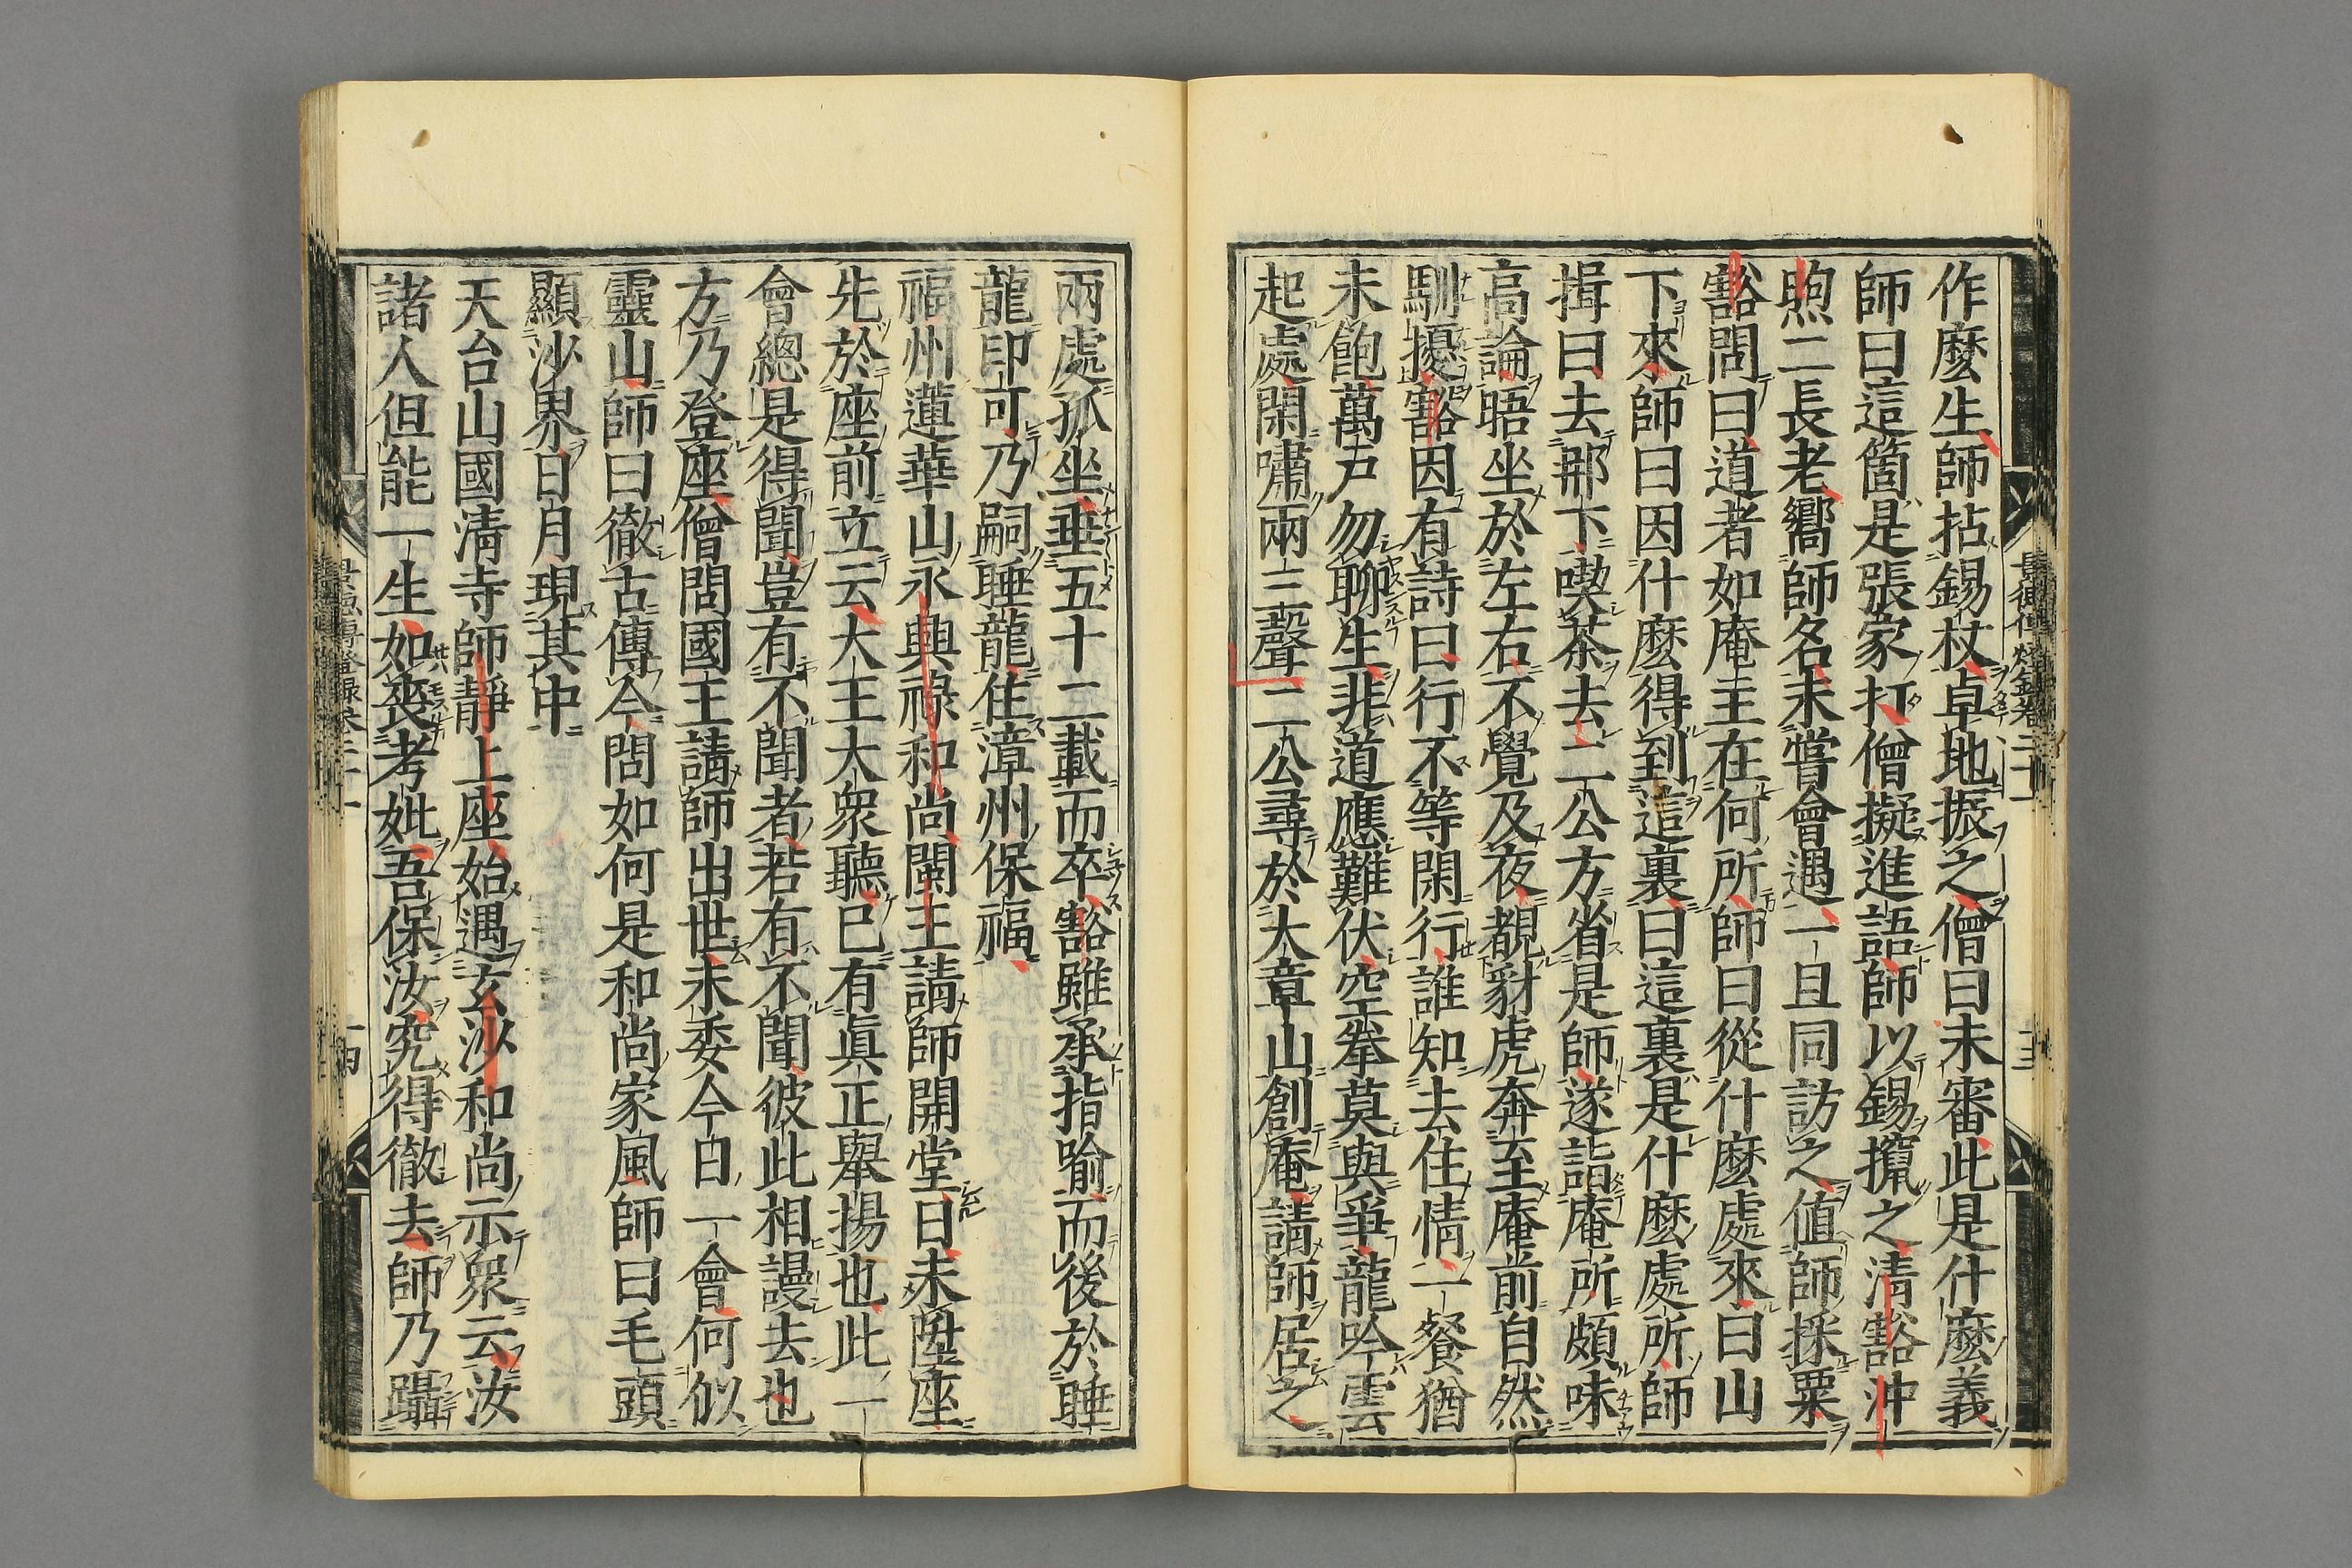 作麼生師拈錫杖卓地振之僧曰未審此是什麼義
師曰這箇是張家打僧擬進語師以錫攛之清豁沖
煦二長老嚮師名未嘗會遇一旦同訪之值師採粟
豁問曰道者如庵主在何所師曰從什麼處來曰山
下來師曰因什麼得到這裏曰這裏是什麼處所師
揖曰去那下喫茶去二公方省是師遂詣庵所頗味
高論晤坐於左右不覺及夜覩豺虎奔至庵前自然
馴擾豁因有詩曰行不等閑行誰知去住情一餐猶
未飽萬戶勿聊生非道應難伏空拳莫與爭龍吟雲
起處閑嘯兩三聲二公尋於大章山創庵請師居之
景德傳燈錄卷二十一
十三
兩處孤坐垂五十二載而卒豁雖承指喻而後於睡
龍印可乃嗣睡龍住漳州保福
福州蓮華山永興祿和尚閩王請師開堂日未陞座
先於座前立云大王大衆聽已有眞正舉揚也此一
會總是得聞豈有不聞者若有不聞彼此相謾去也
方乃登座僧問國主請師出世未委今日一會何似
靈山師曰徹古傳今問如何是和尚家風師曰毛頭
顯沙界日月現其中
天台山國清寺師靜上座始遇玄沙和尚示衆云汝
諸人但能一生如喪考妣吾保汝究得徹去師乃躡
景德傳燈錄卷二十一
十四